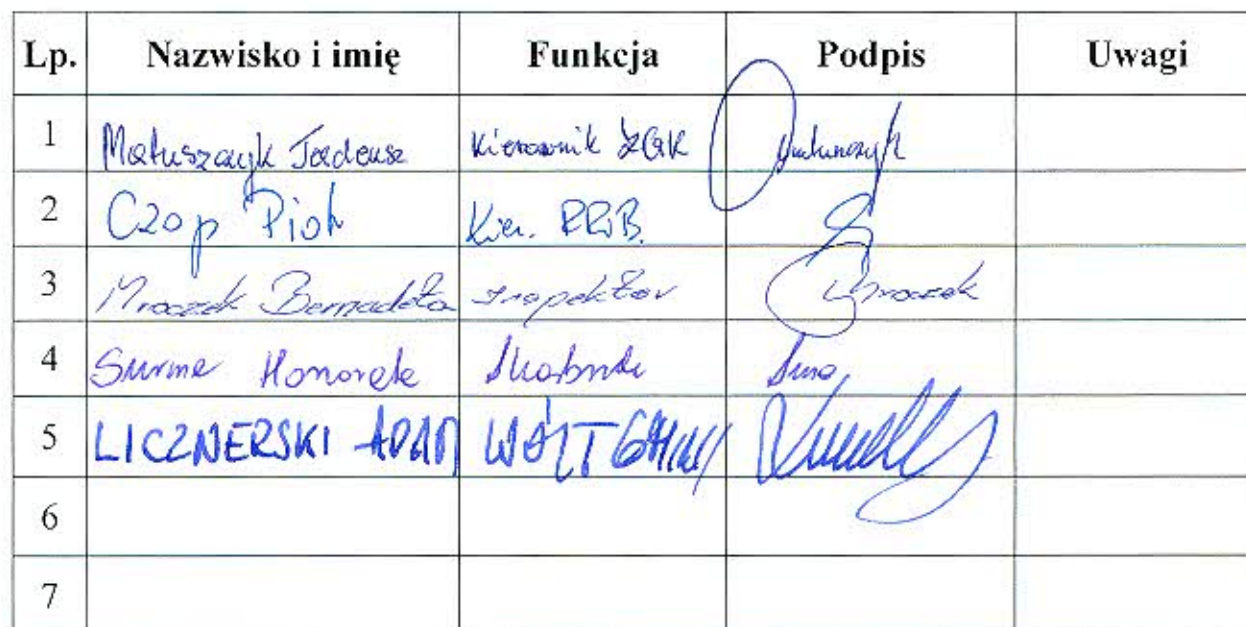 Lp. Nazwisko i imię Funkcja Podpis Uwagi
1 Matuszczyk Tadeusz Kierownik ZGK Matuszczyk
2 Czop Piotr Kier. RRiB.
3 Mroczek Bernadeta Inspektor Mroczek
4 Surma Honorata Skarbnik
5 LICZNERSKI ADAM WÓJT GMINY
6
7